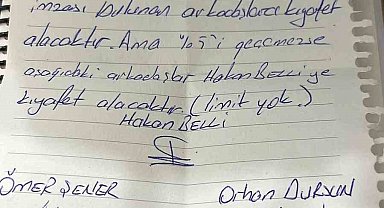 imzası bulunan arkadaşlara kıyafet
alacaktır. Ama %5'i geçemezse
aşağıdaki arkadaşlar Hakan BELLİ'ye
kıyafet alacaktır (limit yok.)
Hakan BELLİ
ÖMER ŞENER Orhan DURSUN